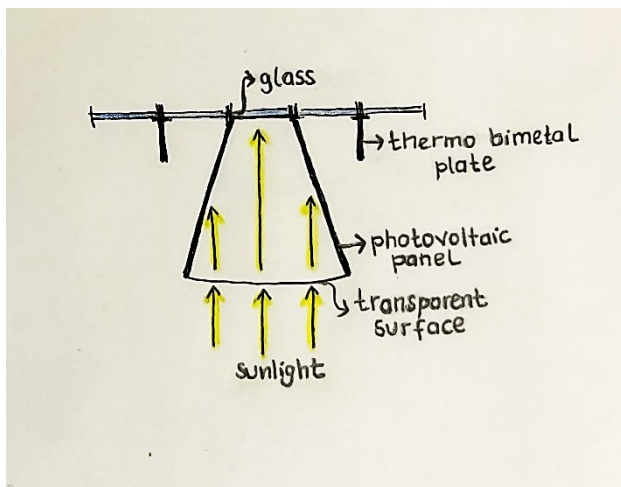 glass
thermo bimetal
plate
photovoltaic
panel
transparent
surface
sunlight